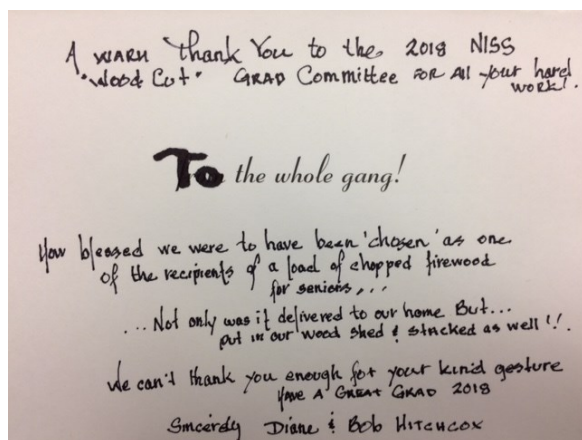 A WARM Thank You to the 2018 NISS
"Wood Cut" GRAD Committee FOR All your hard
WORK!
To the whole gang!
How blessed we were to have been 'chosen' as one
of the recipients of a load of chopped firewood
for seniors,..
...Not only was it delivered to our home But...
put in our wood shed & stacked as well!!
We can't thank you enough for your kind gesture
HAVE A GREAT GRAD 2018
Sincerely Diane & BOB HITCHCOX